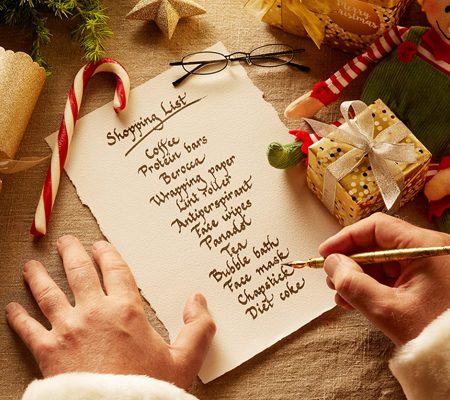 Merry
Christmas
Shopping List
Coffee
Protein bars
Berocca
Wrapping paper
Lint roller
Antiperspirant
Face wipes
Panadol
Tea
Bubble bath
Face mask
Chapstick
Diet coke